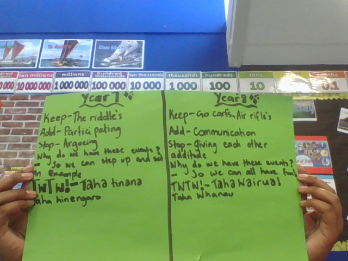 ten millions
millions
hundreds
tens
10 000 000
1 000 000
100 000
10 000
1 000
100
10
0.1
Year 7
Keep-The riddle's
Add-Participating
Stop-Argueing
Why do we have these events?
- So we can step up and set
an Example
TWTW!-Taha tinana
Taha hinengaro
Year 8
Keep-Go carts, Air rifle's
Add-Communication
Stop-Giving each other
additude
Why do we have these events?
- So we can all have fun!
TWTW!-Taha Wairua!
Taha Whanau